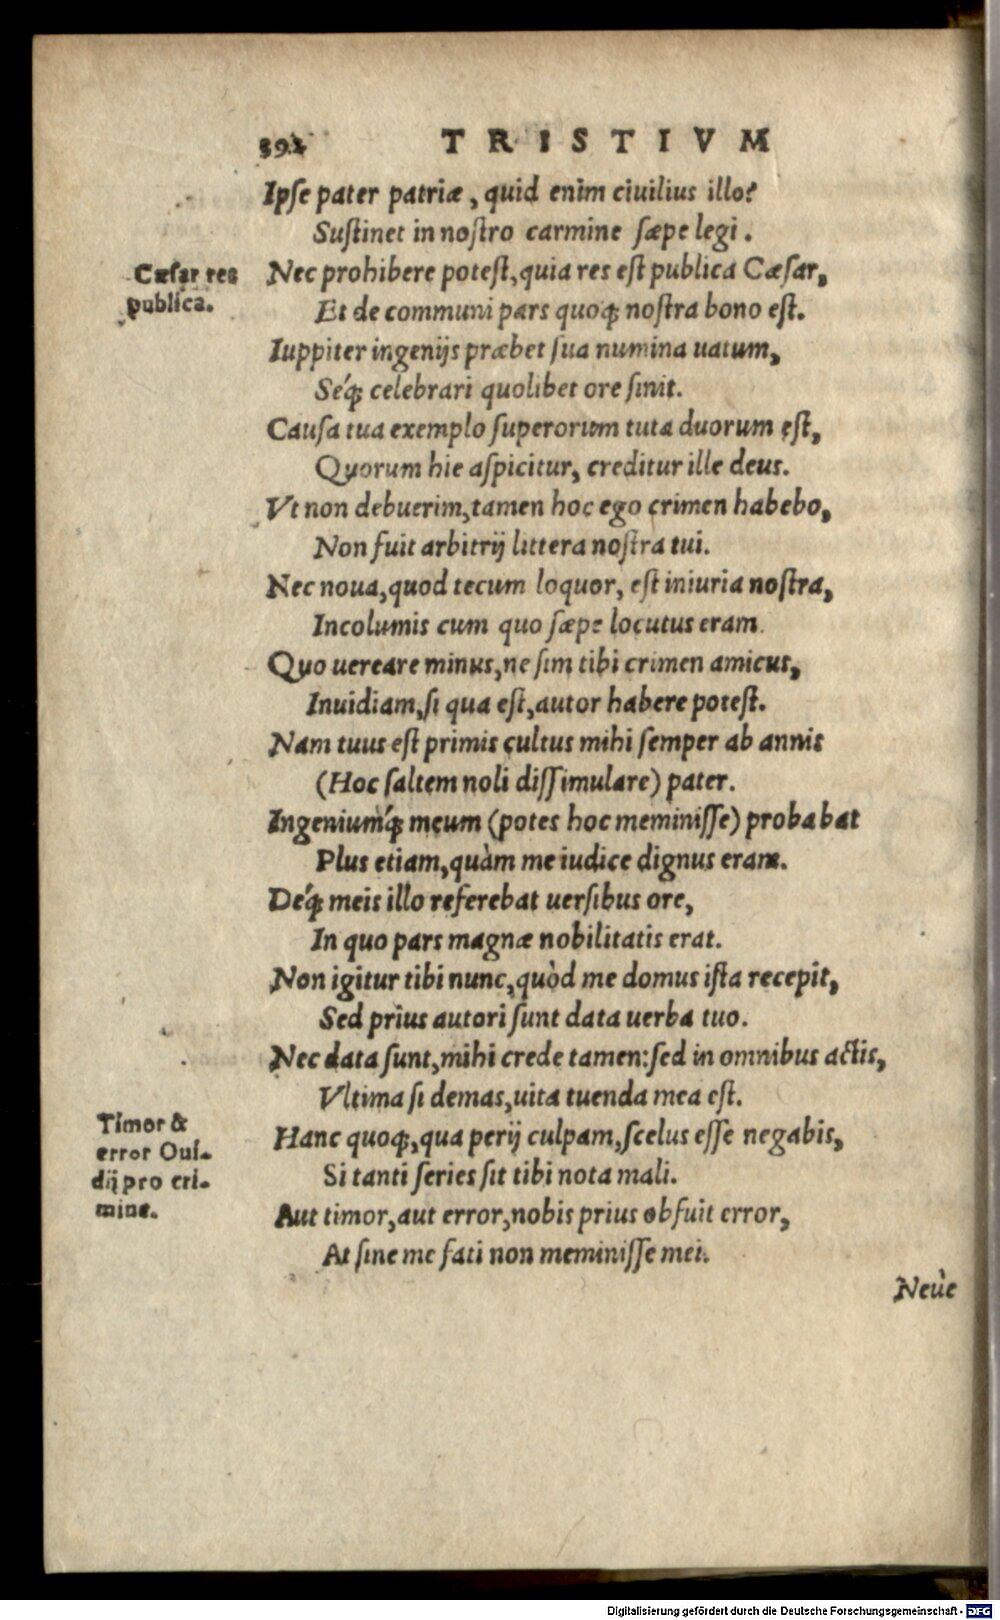 392 TRISTIVM
Ipse pater patriæ, quid enim ciuilius illo?
Sustinet in nostro carmine sæpe legi.
Cæsar res
publica.
Nec prohibere potest, quia res est publica Cæsar,
Et de communi pars quoq; nostra bono est.
Iuppiter ingenijs præbet sua numina uatum,
Seq́; celebrari quolibet ore sinit.
Causa tua exemplo superorum tuta duorum est,
Quorum hic aspicitur, creditur ille deus.
Vt non debuerim, tamen hoc ego crimen habebo,
Non fuit arbitrij littera nostra tui.
Nec noua, quod tecum loquor, est iniuria nostra,
Incolumis cum quo sæpe locutus eram.
Quo uereare minus, ne sim tibi crimen amicus,
Inuidiam, si qua est, autor habere potest.
Nam tuus est primis cultus mihi semper ab annis
(Hoc saltem noli dissimulare) pater.
Ingeniumq́; meum (potes hoc meminisse) probabat
Plus etiam, quàm me iudice dignus eram.
Deq́; meis illo referebat uersibus ore,
In quo pars magnæ nobilitatis erat.
Non igitur tibi nunc, quòd me domus ista recepit,
Sed prius autori sunt data uerba tuo.
Nec data sunt, mihi crede tamen: sed in omnibus actis,
Vltima si demas, uita tuenda mea est.
Timor &
error Oui-
dij pro cri-
mine.
Hanc quoq;, qua perij culpam, scelus esse negabis,
Si tanti series sit tibi nota mali.
Aut timor, aut error, nobis prius obfuit error,
At sine me fati non meminisse mei.
Neùe
Digitalisierung gefördert durch die Deutsche Forschungsgemeinschaft - DFG